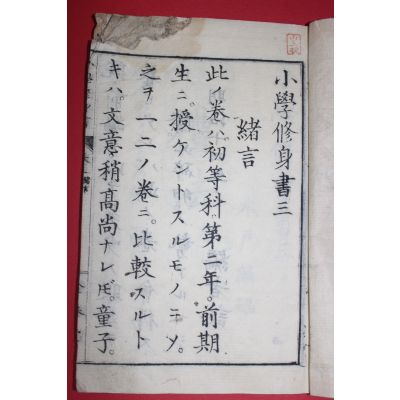 小學修身書三
緒言
此ノ卷ハ。初等科。第二年。前期
生ニ。授ケントスルモノニソ。
之ヲ一二ノ卷ニ。比較スルト
キハ。文意稍髙尚ナレ𪜈。童子。